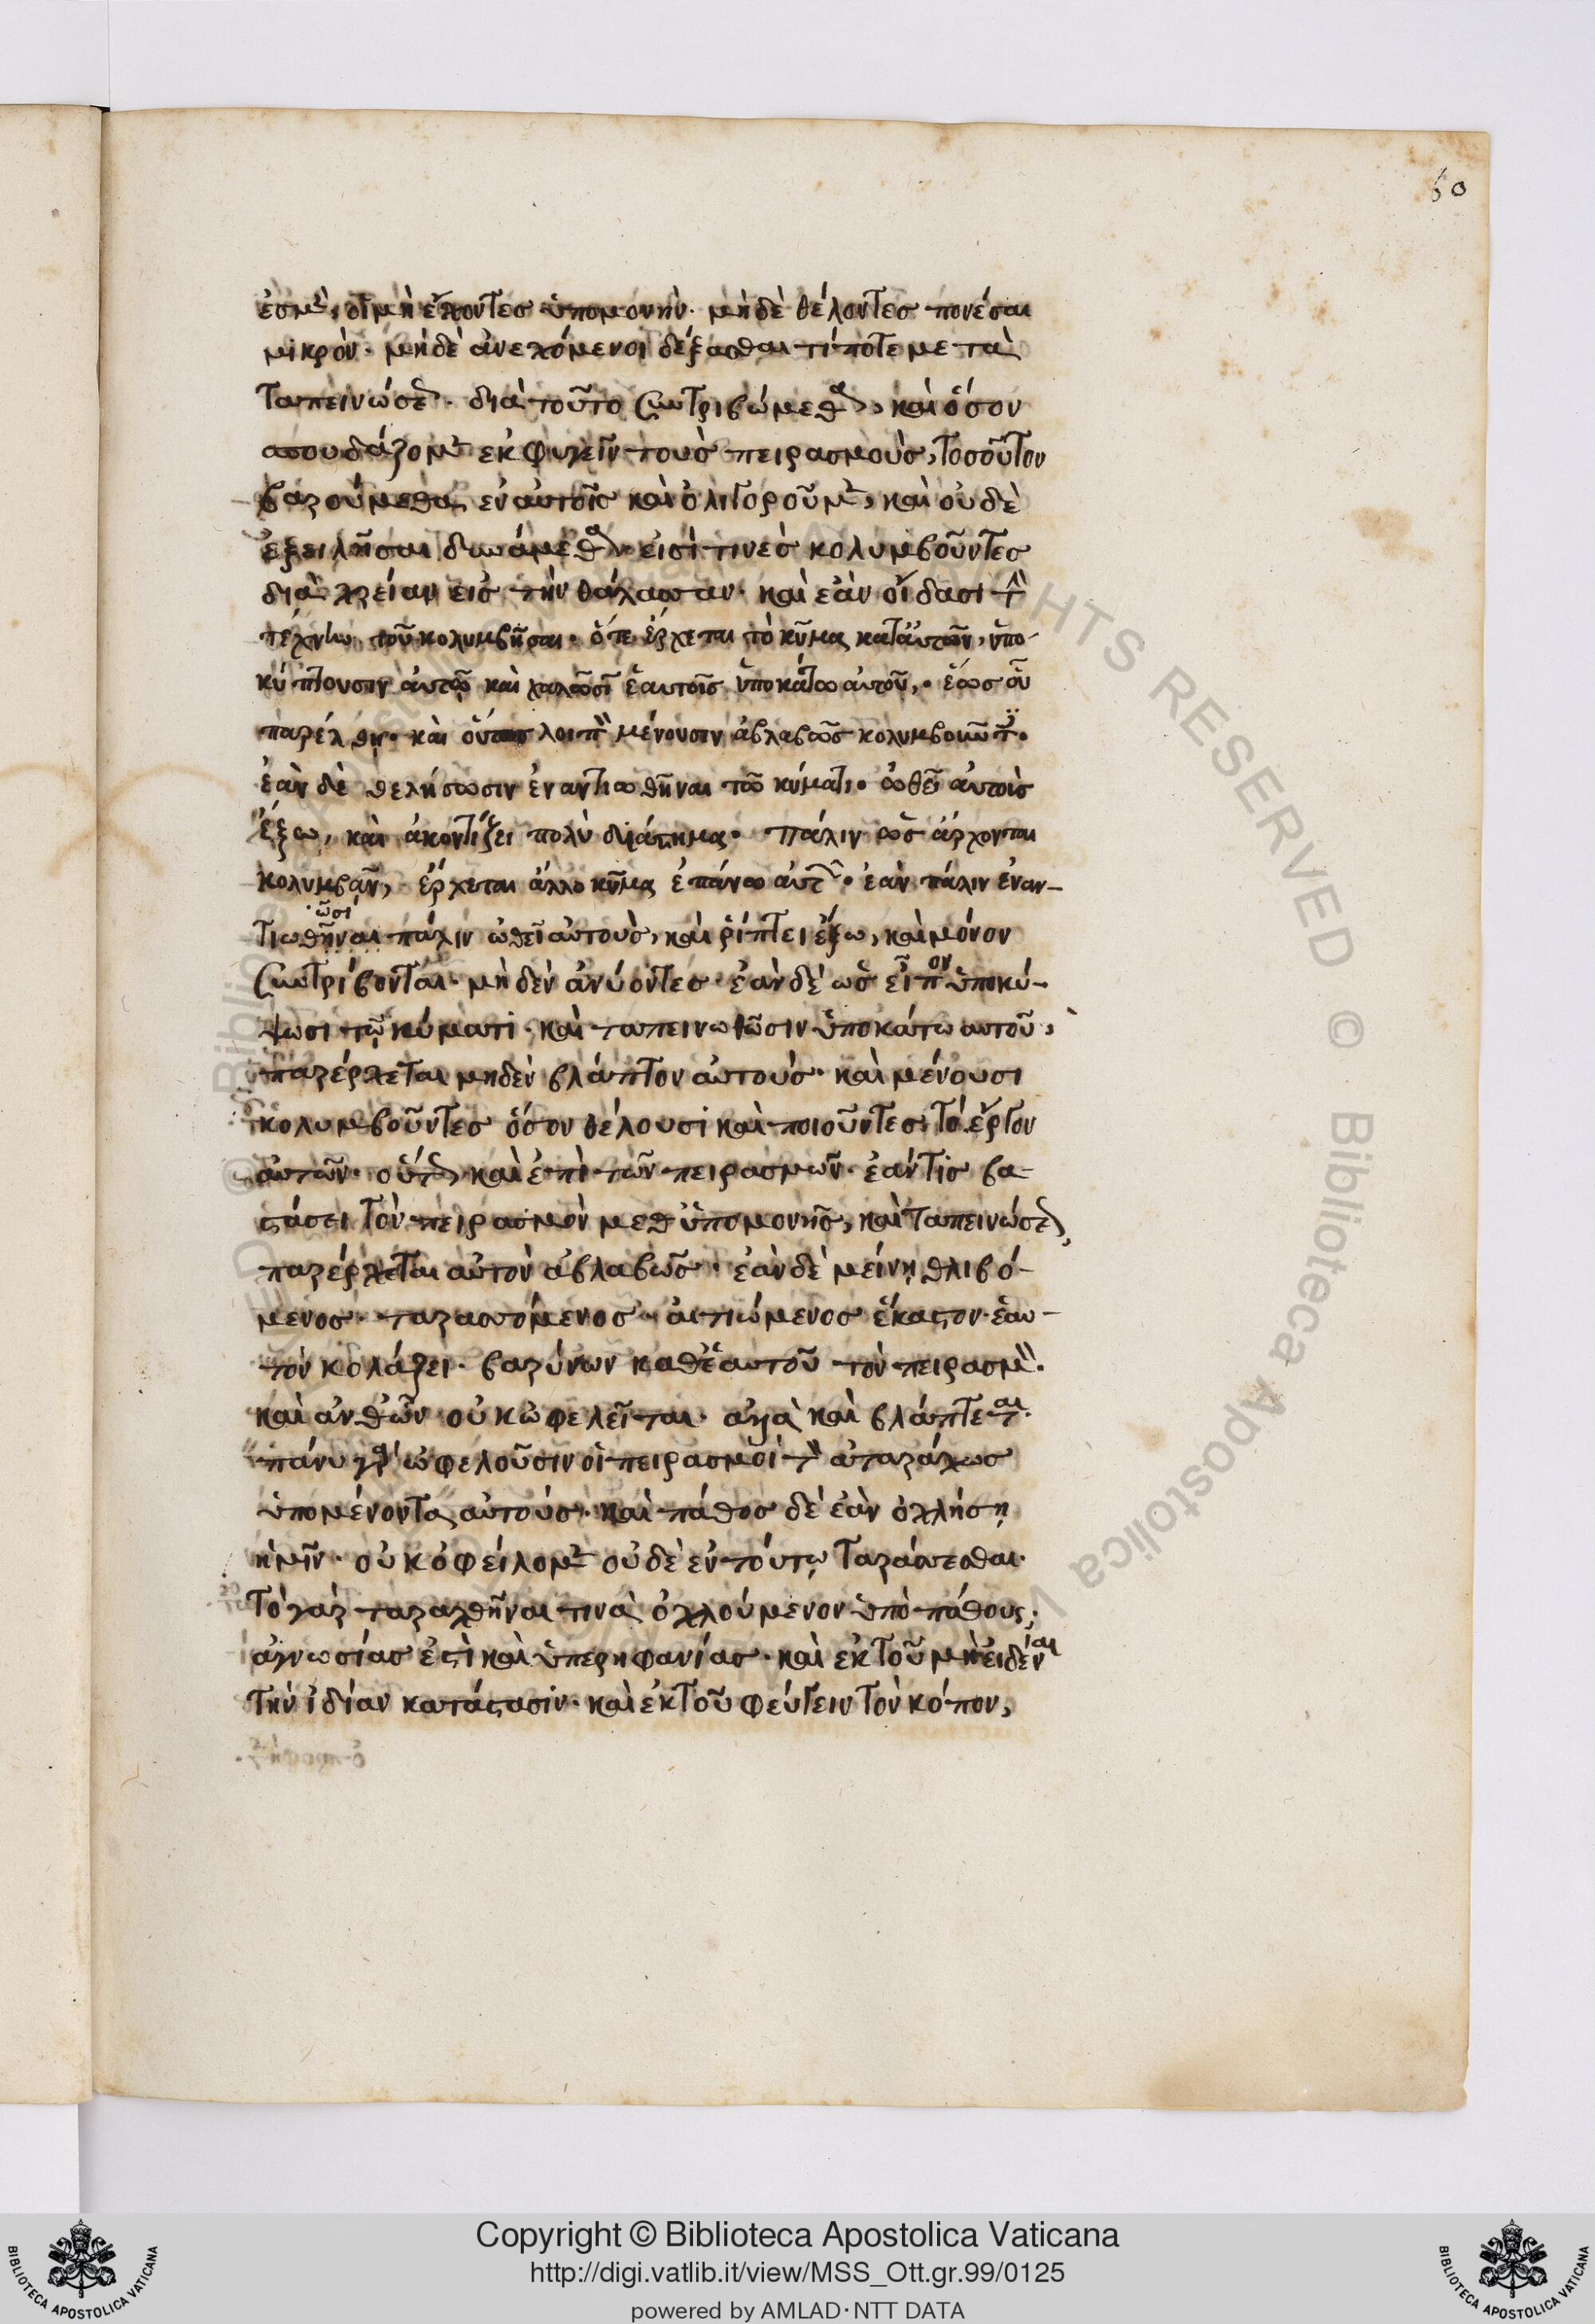 60
ἐσμὲν, οἱ μὴ ἔχοντες ὑπομονὴν· μὴδὲ θέλοντες πονέσαι
μικρὸν· μὴδὲ ἀνεχόμενοι δέξασθαι τίποτε μετὰ
ταπεινώσεως· διὰ τοῦτο συντριβώμεθα, καὶ ὅσον
σπουδάζομεν ἐκφυγεῖν τοὺς πειρασμοὺς, τοσοῦτον
βαρούμεθα ἐν αὐτοῖς καὶ ὀλιγοροῦμεν, καὶ οὐδὲ
ἐξειλῆσαι δυνάμεθα· εἰσί τινὲς κολυμβοῦντες
διὰ χρείαν εἰς τὴν θάλασσαν· καὶ ἐὰν οἴδασι τὴν
τέχνην τοῦ κολυμβῆσαι· ὅτε ἔρχεται τὸ κῦμα κατ' αὐτῶν, ὑπο-
κύπτουσιν αὐτῶ καὶ χαλῶσῒ ἑαυτοῖς ὑποκάτω αὐτοῦ, · ἕως οὗ
παρέλθη· καὶ οὕτως λοιπὸν μένουσιν ἀβλαβῶς κολυμβοῦντες·
ἐὰν δὲ θελήσωσιν ἐναντιωθῆναι τῶ κύματι· ὠθεῖ αὐτοὺς
ἔξω, καὶ ἀκοντίζει πολὺ διάστημα· πάλιν ὡς ἄρχονται
κολυμβᾶν, ἔρχεται ἄλλο κῦμα ἐπάνω αὐτῶν· ἐὰν πάλιν ἐναν-
τιωθῆναι πάλιν ὠθεῖ αὐτοὺς, καὶ ῥίπτει ἔξω, καὶ μόνον
ῶσι
συντρίβονται· μὴδὲν ἀνύοντες· ἐὰν δὲ ὡς εἶπον ὑποκύ-
ψωσι τῷ κύματι· καὶ ταπεινωθῶσιν ὑποκάτω αυτοῦ,
παρέρχεται μηδὲν βλάπτον αὐτοὺς· καὶ μένουσι
κολυμβοῦντες ὅσον θέλουσι καὶ ποιοῦντες τὸ ἔργον
αὐτῶν· οὕτως καὶ ἐπὶ τῶν πειρασμῶν· ἐάν τις βα-
στάσει τὸν πειρασμὸν μεθ' ὑπομονῆς, καὶ ταπεινώσεως,
παρέρχεται αὐτὸν ἀβλαβῶς· ἐὰν δὲ μείνῃ θλιβό-
μενος· ταρασσόμενος· αἰτιώμενος ἕκαστον· ἑαυ-
τὸν κολάζει· βαρύνων καθ' ἑαυτοῦ τὸν πειρασμὸν·
καὶ ἀνθ' ὧν οὐκ ὠφελεῖται· ἀλλὰ καὶ βλάπτεται·
πάνυ γὰρ ὠφελοῦσιν οἱ πειρασμοὶ τὸν ἀταράχως
ὑπομένοντα αὐτούς· καὶ πάθος δὲ ἐὰν ὀχλήσῃ
ἡμῖν· οὐκ ὀφείλομεν οὐδὲ ἐν τούτῳ ταράσσεσθαι·
τὸ γὰρ ταραχθῆναι τινὰ ὀχλούμενον ὑπὸ πάθους,
ἀγνωσίας ἐστὶ καὶ ὑπερηφανίας· καὶ ἐκ τοῦ μὴ εἰδέναι
τὴν ἰδίαν κατάστασιν· καὶ ἐκ τοῦ φεύγειν τὸν κόπον,
Copyright © Biblioteca Apostolica Vaticana
http://digi.vatlib.it/view/MSS_Ott.gr.99/0125
powered by AMLAD·NTT DATA